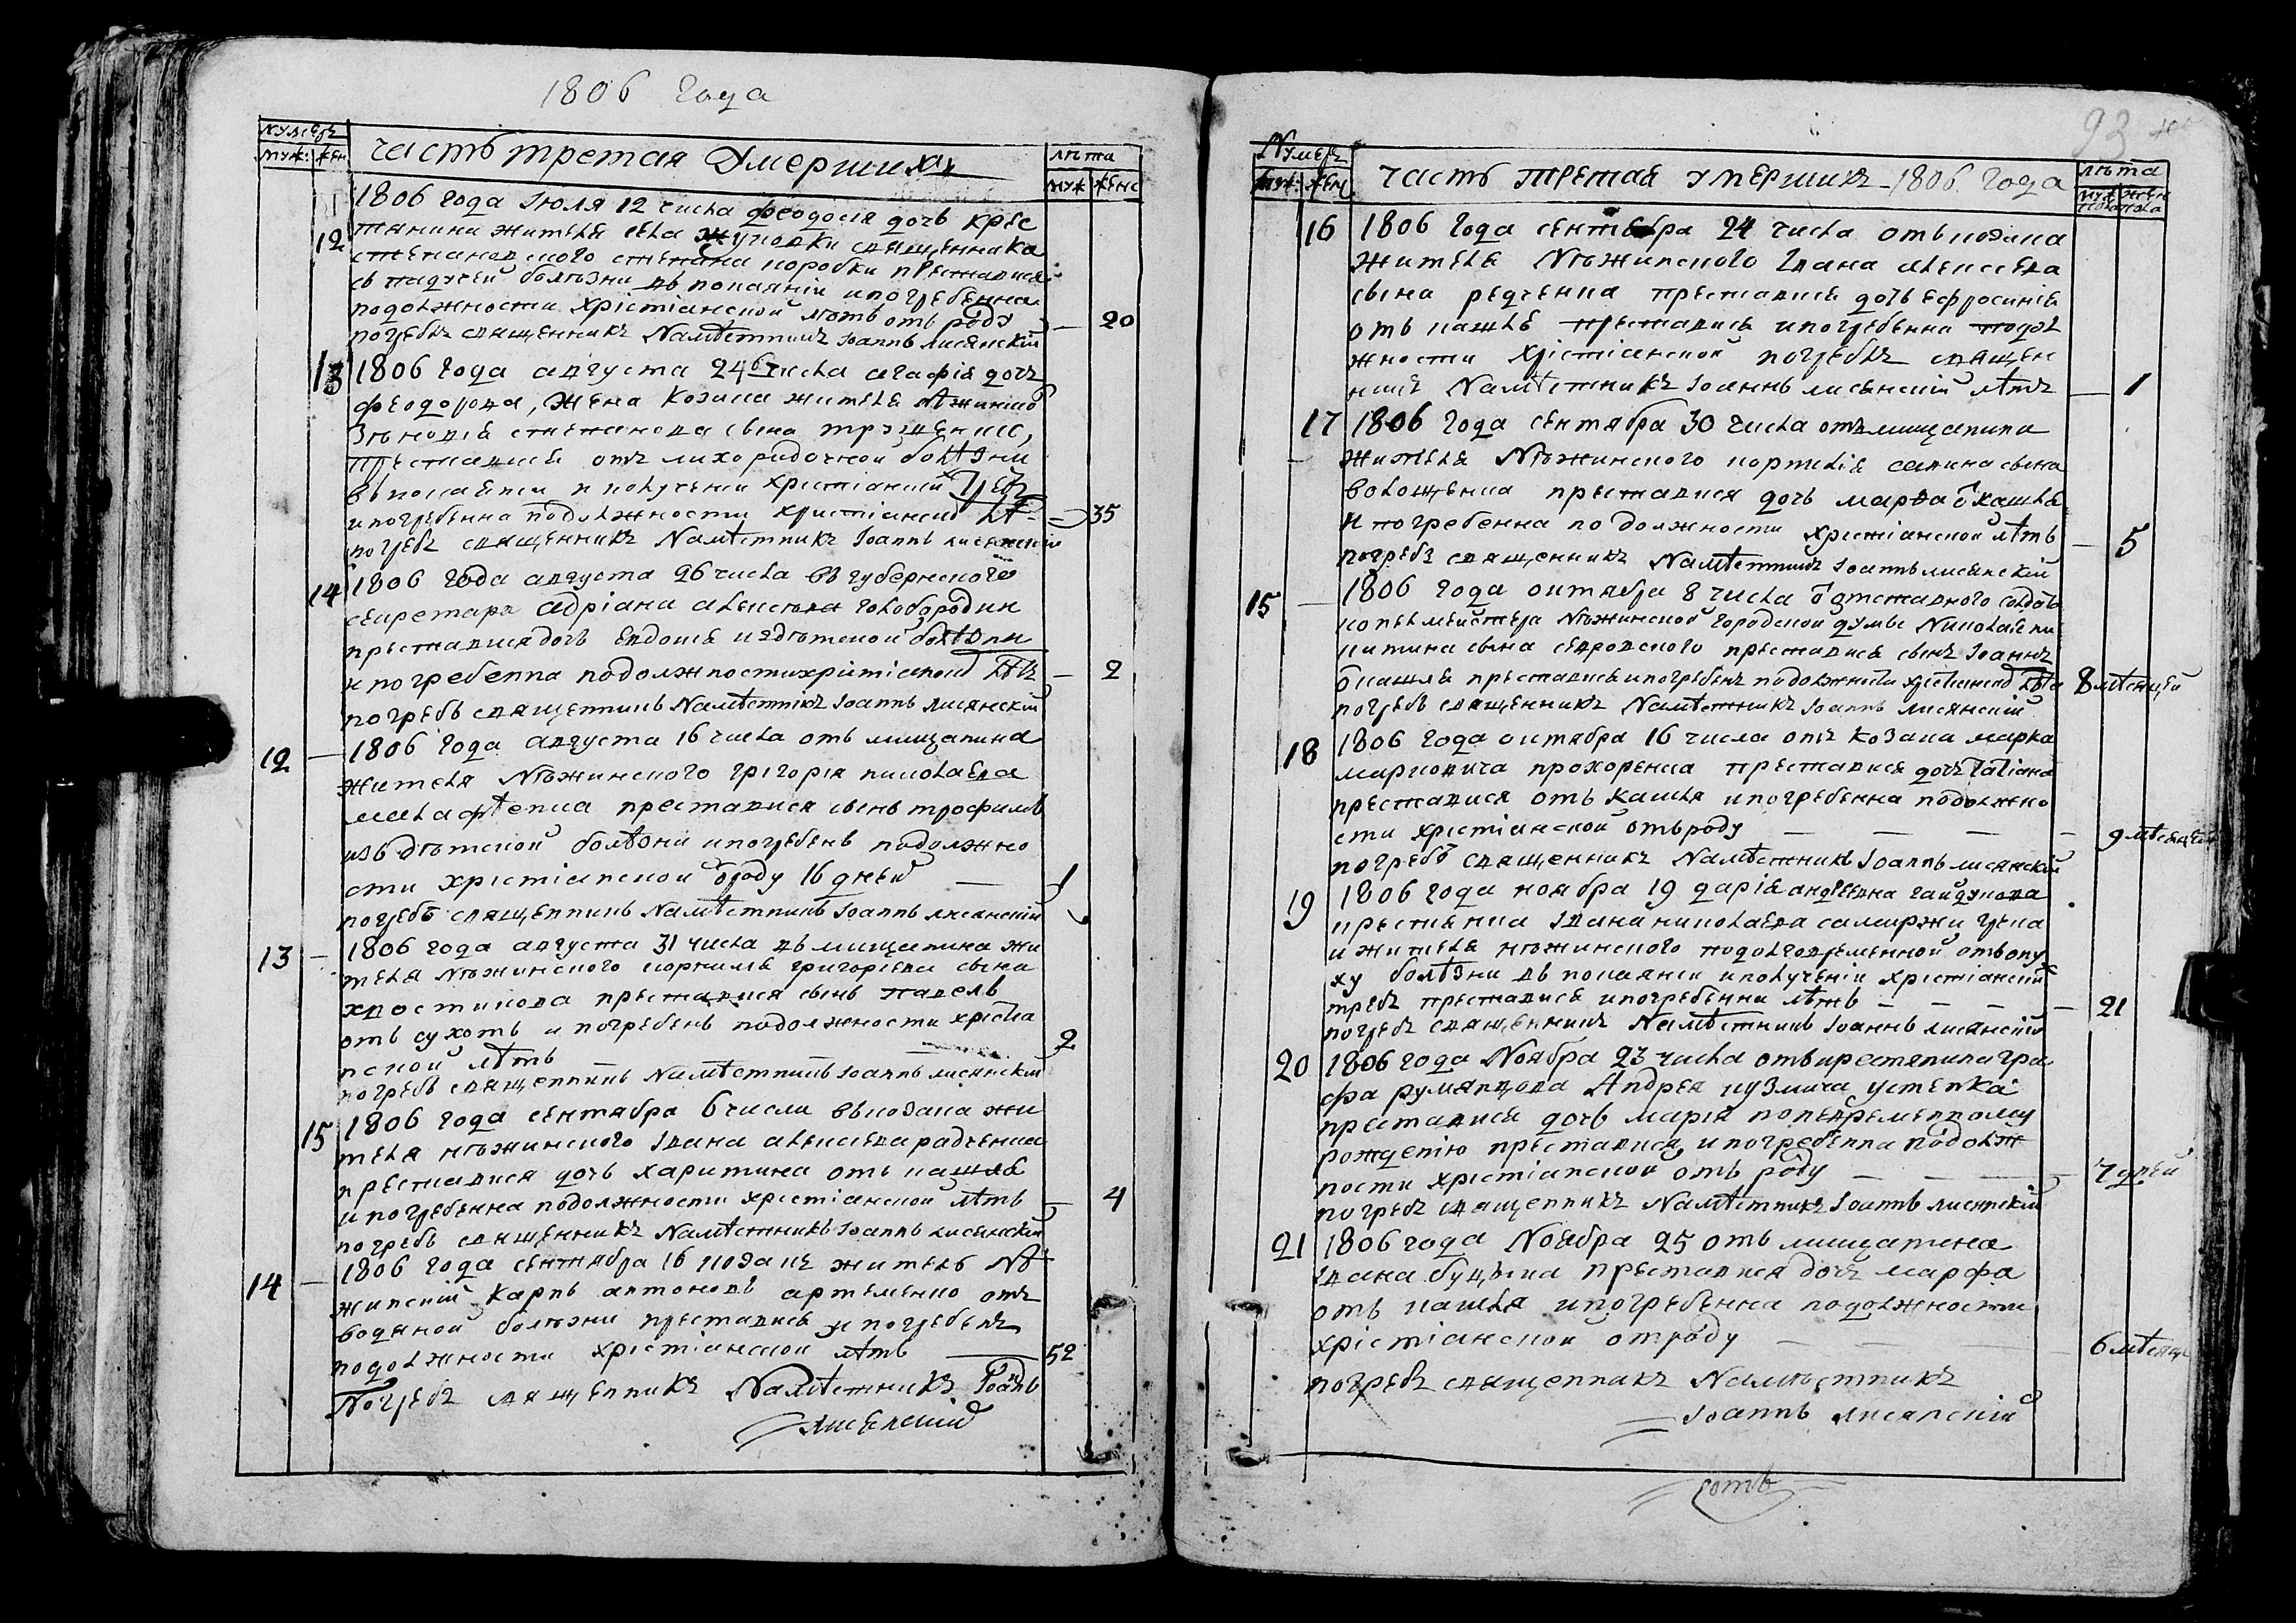 1806 года
нумеръ
муж: жен
часть третая Умершихъ
лѣта
муж женс
12
1806 года Июля 12 числа феодосія дочь крес
тянина жителя села священника
коробки преставися
въ падучей болѣзни въ покаяніи и погребенна
подолжности хрістіанской лѣтъ отъ роду — 20
погребъ священникъ Намѣстникъ Іоаннъ лисянскій
13
1806 года августа 24 числа агафія дочь
феодорова, жена козака жителя нѣжинско
Зѣновія степанова сына
преставися отъ лихорадочной болѣзни
въ покаяніи и полученіи хрістіанскій требъ
и погребенна подолжности хрістіанско лѣ — 35
погребъ священникъ Намѣстникъ Іоаннъ лисянскій
14
1806 года августа 26 числа въ губернского
секретара адріана алексѣева голобородки
преставися дочь евдокія издѣтской болѣзни
и погребенна подолжностихрістіанской лѣтъ — 2
погребъ священникъ Намѣстникъ Іоаннъ лисянскій
12 —
1806 года августа 16 числа отъ мищанина
жителя Нѣжинского григорія николаева
преставися сынъ трофимъ
изъ дѣтской болѣзни и погребенъ подолжно
сти хрістіанской ѿроду 16 дней — 1
погребъ священникъ Намѣстникъ Іоаннъ лисянскій
13 —
1806 года августа 31 числа въ мищанина жи
теля Нѣжинского корнилія григоріева сына
хвостикова преставися сынъ павелъ
отъ сухотъ и погребенъ подолжности хрістіа
нской лѣтъ — 2
погребъ священникъ Намѣстникъ Іоаннъ лисянскій
15
1806 года сентября 6 числа въ козака жи
теля нѣжинского Івана алексѣева радченка
преставися дочь харитина отъ кашля
и погребенна подолжности хрістіанской лѣтъ — 4
погребъ священникъ Намѣстникъ Іоаннъ лисянскій
14 —
1806 года сентября 16 козакъ житель Нѣ
жинскій карпъ антоновъ артеменко отъ
водяной болѣзни преставись и погребенъ
подолжности хрістіанской лѣтъ — 52
Погребъ священникъ Намѣстникъ Іоаннъ
лисянскій
93
Нумеръ
муж: жен
часть третая умершихъ 1806 года
лѣта
муж жен
пола пола
16
1806 года сентебра 24 числа отъ козака
жителя Нѣжинского Івана алексеева
сына редченка преставися дочь ефросинія
отъ кашля преставись и погребенна подол
жности хрістіанской погребъ священ
никъ Намѣстникъ Іоаннъ лисянскій лѣтъ — 1
17
1806 года сентября 30 числа отъ мищанина
жителя Нѣжинского корнелія савина сына
волощенка преставися дочь марфа ѿ кашля
и погребенна подолжности хрістіанской лѣтъ — 5
погребъ священникъ Намѣстникъ Іоаннъ лисянскій
15 —
1806 года октября 8 числа ѿ отставного солдата
Нѣжинской городской думы Николая ни
китина сына преставися сынъ Іоаннъ
ѿ кашля преставись и погребенъ подолжности хрістіанской лѣта 8 мѣсяцей
погребъ священникъ Намѣстникъ Іоаннъ лисянскій
18
1806 года октября 16 числа отъ козака марка
марковича прохоренка преставися дочь татіана
преставися отъ кашля и погребенна подолжно
сти хрістіанской отъроду — — — — 9 мѣсяцей
погребъ священникъ Намѣстникъ Іоаннъ лисянскій
19
1806 года ноября 19 дарія андреевна гайдукова
Івана николаева грека
и жителя нѣжинского подолговременной отъопу
ху болѣзни въ покаяніи и полученіи хрістіанскій
требъ преставися и погребенна лѣтъ — — — — 21
погребъ священникъ Намѣстникъ Іоаннъ лисянскій
20
1806 года Ноября 23 числа отъкрестянина гра
фа румянцова Андрея кузмича устенка
преставися дочь марія поневременному
рождению преставися и погребенна подолж
ности хрістіанской отъ роду — — — — 7 дней
погребъ священникъ Намѣстникъ Іоаннъ лисянскій
21
1806 года Ноября 25 отъ мищанена
Івана преставися дочь марфа
отъ кашля и погребенна подолжности
хрістіанской отроду — — — 6 мѣсяц
погребъ священникъ Намѣстникъ
Іоаннъ лисянскій